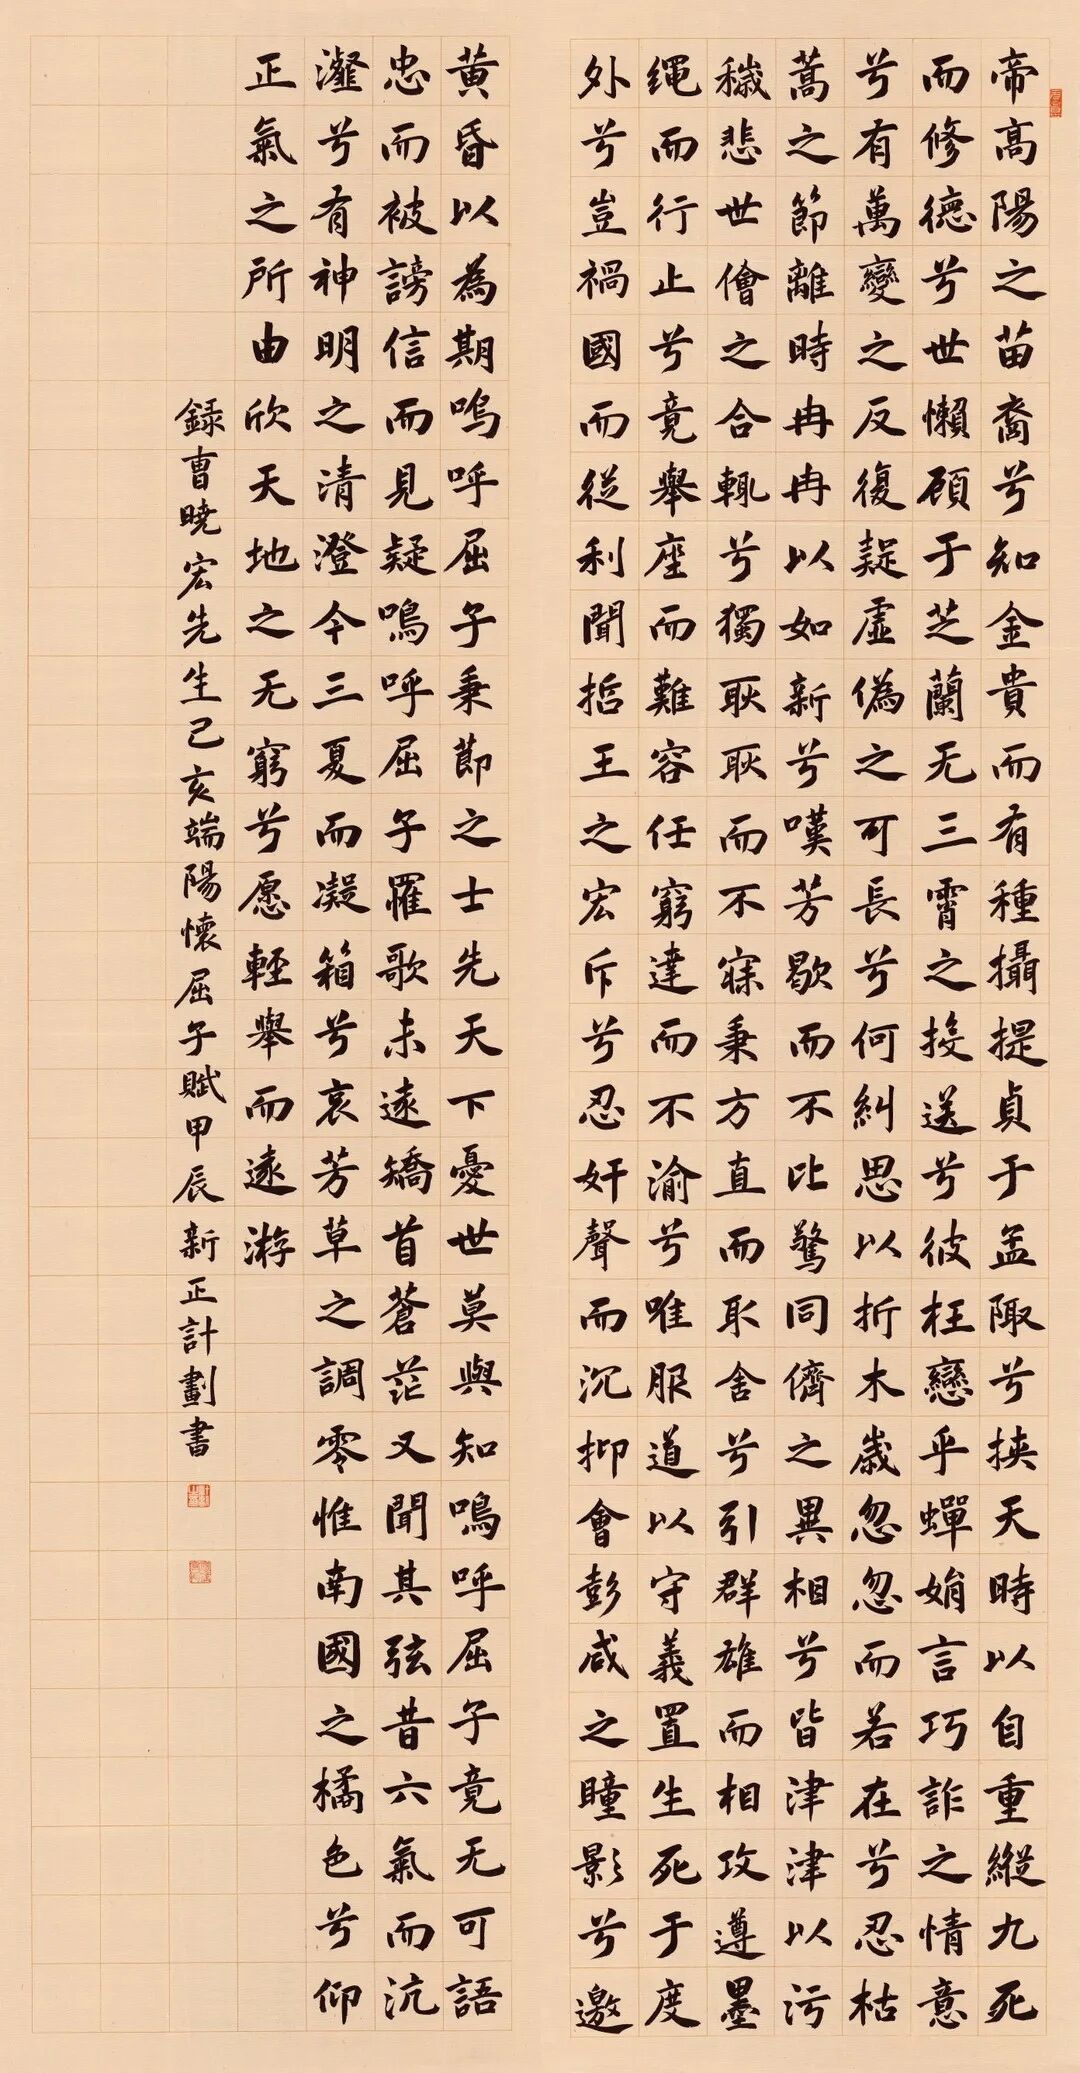 帝高陽之苗裔兮知金貴而有種攝提貞于孟陬兮挾天時以自重縱九死
而修德兮世懶顧于芝蘭无三霄之授送兮彼枉戀乎蟬娟言巧詐之情意
兮有萬變之反復疑虛偽之可長兮何糾思以折木歲忽忽而若在兮忍枯
蒿之節離時冉冉以如新兮嘆芳歇而不比驚同儕之異相兮皆津津以污
穢悲世儈之合輒兮獨耿耿而不寐秉方直而取舍兮引群雄而相攻遵墨
绳而行止兮竟舉座而難容任窮達而不渝兮唯服道以守義置生死于度
外兮豈禍國而從利聞哲王之宏斥兮忍奸聲而沉抑會彭咸之瞳影兮邀
黄昏以為期嗚呼屈子秉節之士先天下憂世莫與知嗚呼屈子竟无可語
忠而被謗信而見疑嗚呼屈子罹歌未遠矯首蒼茫又聞其弦昔六氣而沆
瀣兮有神明之清澄今三夏而凝箱兮哀芳草之調零惟南國之橘色兮仰
正氣之所由欣天地之无窮兮愿輕舉而遠游
録曹曉宏先生己亥端陽懷屈子賦甲辰新正計劃書